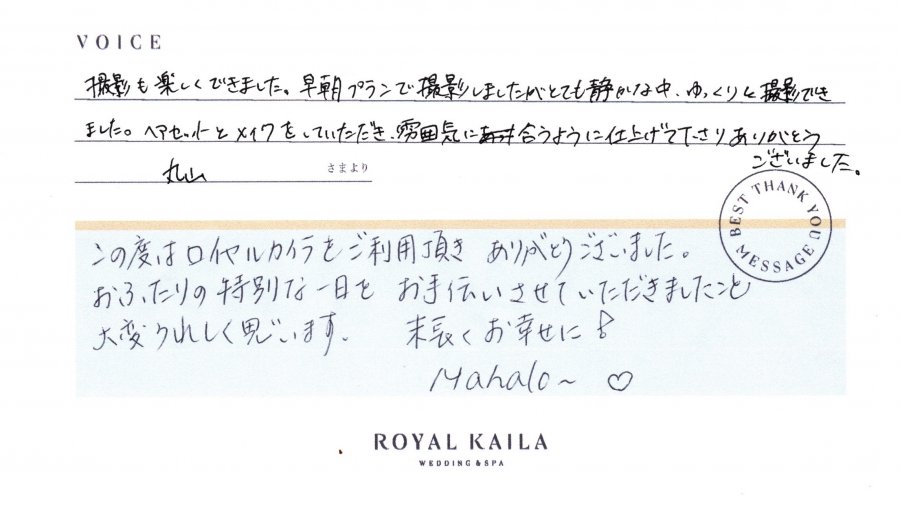 VOICE
撮影も楽しくできました。早朝プランで撮影しましたがとても静かな中、ゆっくりと撮影でき
ました。ヘアセットとメイクをしていただき、雰囲気に合うように仕上げて下さりありがとう
ございました。
丸山 さまより
BEST THANK YOU MESSAGE
この度はロイヤルカイラをご利用頂き ありがとうございました。
おふたりの特別な一日を お手伝いさせていただきましたこと
大変うれしく思います。 末長くお幸せに!
Mahalo~ ♡
ROYAL KAILA
WEDDING & SPA